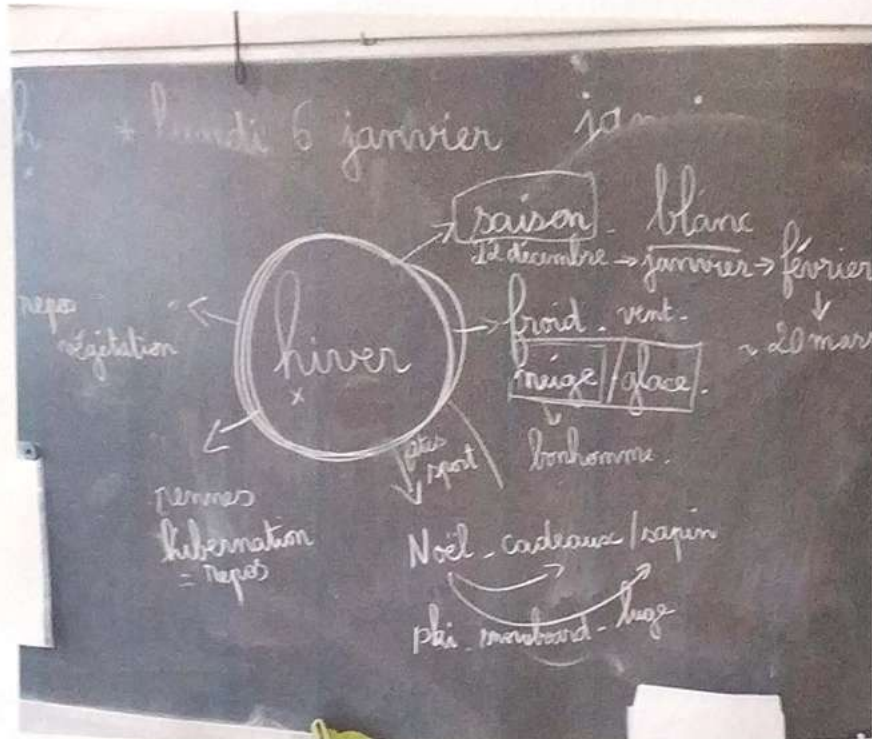 h + lundi 6 janvier jan
saison - blanc
12 décembre → janvier → février
~ 20 mars
froid - vent -
neige / glace.
bonhomme.
hiver
x
repos
végétation
rennes
hibernation
= repos
fêtes
sport
Noël - cadeaux / sapin
ski - snowboard - luge